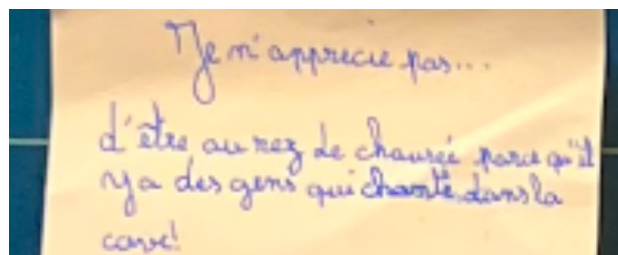 Je n'apprecie pas...
d'être au rez de chaussé parce qu'il
y a des gens qui chante dans la
cave!